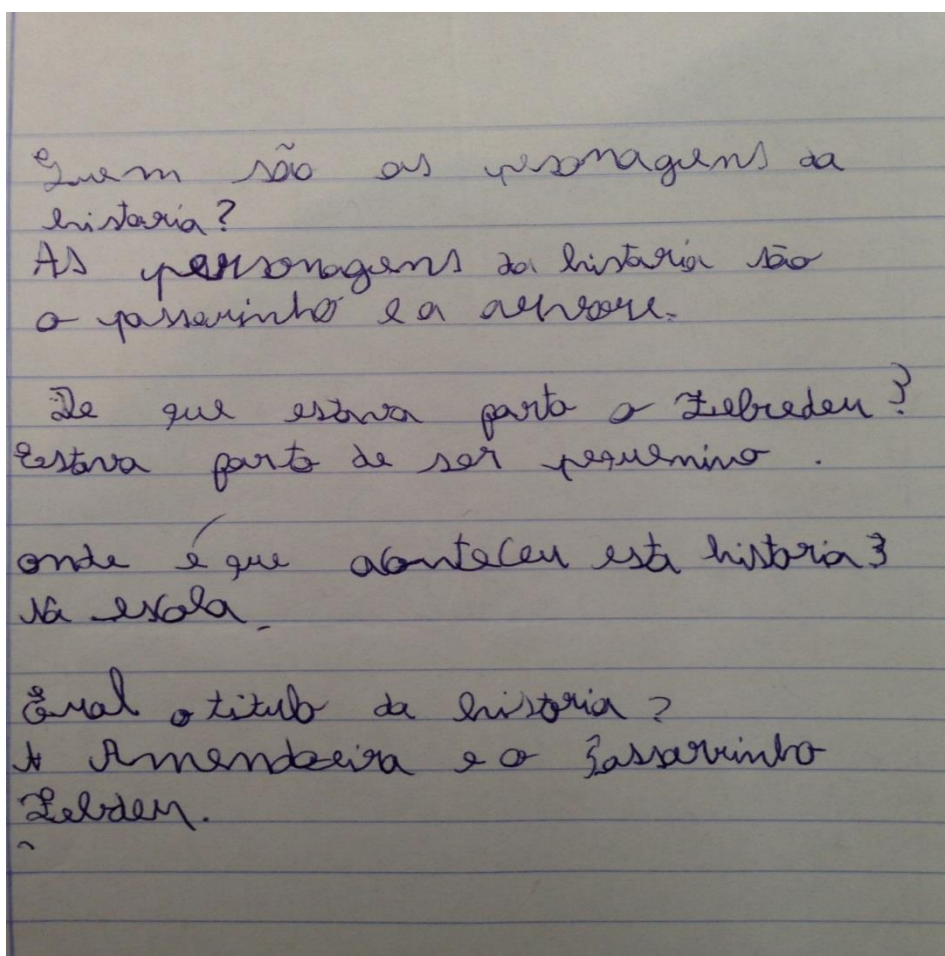 Quem são as pesonagens da
historia?
As personagens da historia são
o passarinho e a
De que estava parto o Zebredeu?
Estava parto de ser pequenino.
onde é que aconteceu esta historia?
Na escola.
Qual o titulo da historia?
A Amendoeira e o Passarinho
Zebdeu.